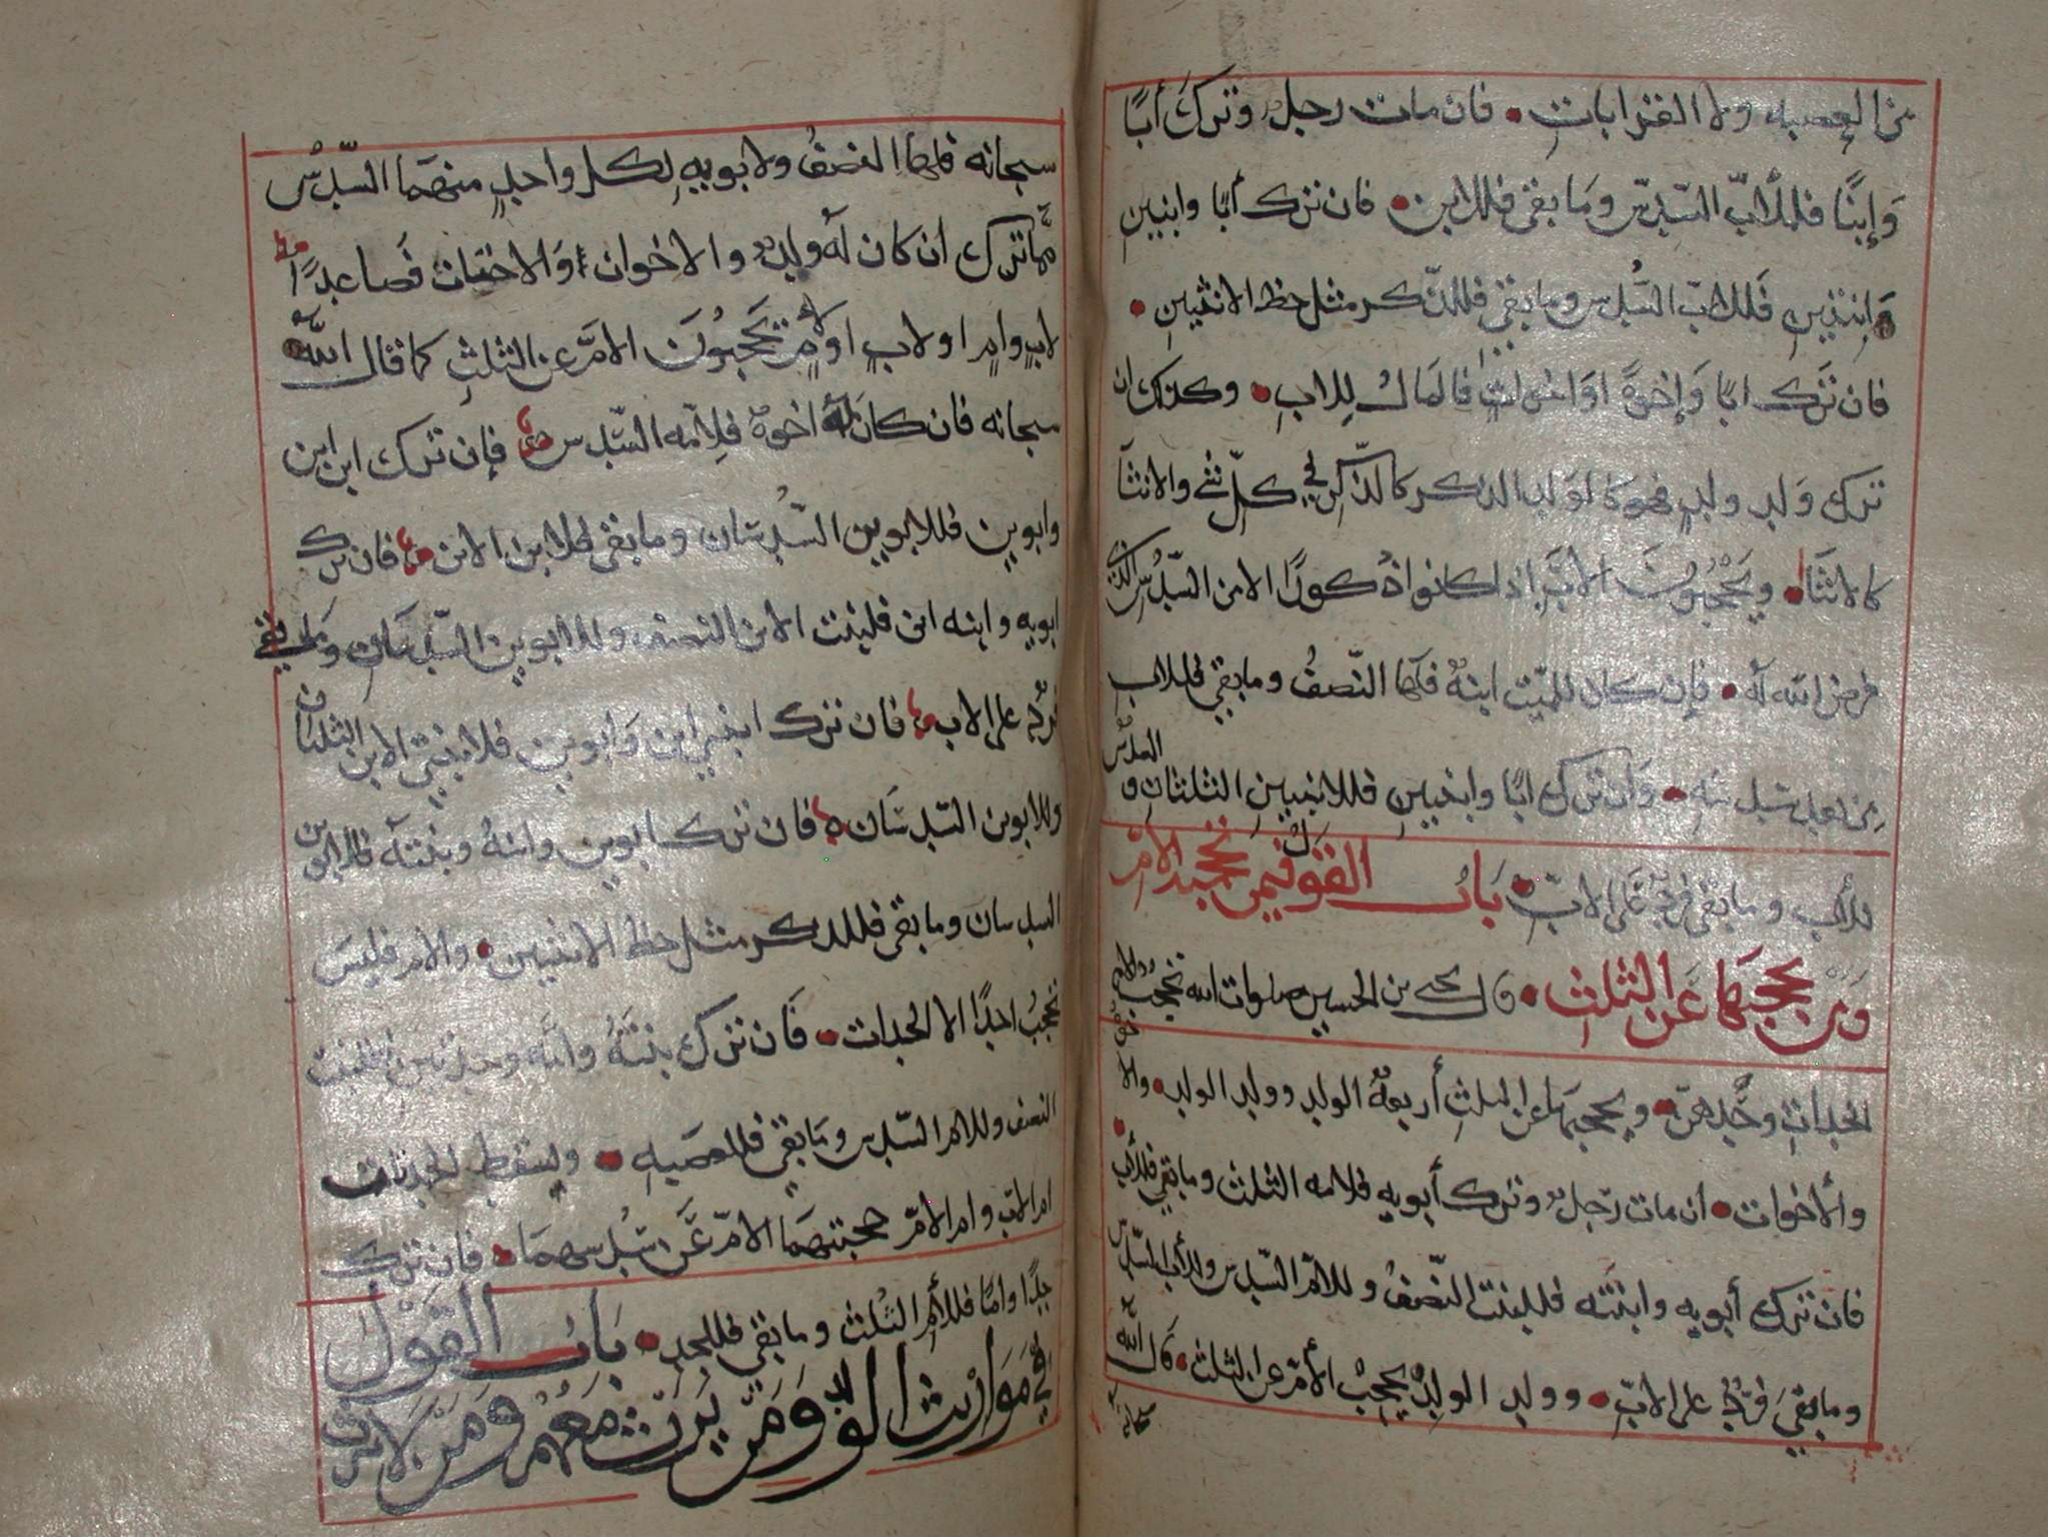 من العصبه ولا القرابات • فان مات رجل وترك أبًا
وَإبنًا فللأب السّدس وَما بقى فللابن • فان ترك أبا وابنين
وَابنتين فللاب السُّدس وما بقي فللذّكر مثل حظ الانثيين •
فان ترك ابا وَإخوةً اوَاخواتٍ فالمال لِلابِ • وكذلك ان
ترك وَلد ولدٍ فهو كالولد الذكر كالذّكر في كلّ شئ والانثا
كالانثا • ويَحْجُبونَ الابَ اذا كانوا ذُكورًا الا من السّدُس الذي
فرض الله له • فإن كان للميّت ابنهٌ فلَها النّصفُ وما بقي فللاب
من بعد سُدسه • وَان ترك ابًا وابنتين فللابنتين الثلثان و السدسُ
للأب وما بقى فردٌّ عَلى الابّ • بَابُ القول فيمن تحجبه الامّ
وَمن يحجبهَا عَن الثلث • قال يحيى بن الحسين صلوات الله تحجبُ الام
الجدات وحَّدهنّ • ويحجبهَا عن الثلثِ أربعةٌ الولد وولد الولد • والاخوة
والأخوات • ان مات رّجلٌ وترك أبويه فلامه الثلث وما بقي فللأب •
فان ترك أبويه وابنتَه فللبنت النّصفُ وللامّ السّدس وللأب السّدس
وما بقيَ فرَدٌّ على الابّ • وولد الولد يحجبُ الأمّ عن الثلث • قال الله
سبحانه
سبحانه فلها النصفُ ولابويهِ لِكل واحدٍ منهمَا السّدسُ
مّما ترك ان كان لَه ولدٌ والاخوان أوَالاختان فَصاعدًا
لابٍ وامٍ او لابٍ او لامٍ تَحْجبُونَ الامّ عن الثلثِ كما قال الله
سبحانه فان كان لَه اخوةٌ فلِامّه السّدس فإن ترك ابن ابن
وابوين فللابوين السُّدسَان وما بقى فلابن الابن فان ترك
ابويه وابنه ابن فلبنت الابن النصف وللابوين السّدسَان وما بقي
فردٌّ على الاب فان ترك ابنتي ابن وَابوين فلابنتي الابن الثلثان
وللابوين السّدسَان فان ترك ابوين وابنهُ وبنتَه فللابوين
السدسان وما بقى فللذكر مثل حظ الانثيين • والام فليسَ
تحجبُ احدًا الا الجدات • فَان ترك بنتَهُ وامَّه وجدتين فللبنت
النصف وللام السّدس وَمَا بقيَ فللعصبهِ • ويسقط الجدتان
ام الابّ وام الامّ حجبتهمَا الامّ عَن سُدسهمَا • فان ترك
جدًا وامًا فللأم الثلث وما بقي فللجد • بَابُ القَوْل
في مَوَارْيث الولد وَمَنْ يَرثُ مَعَهُم وَمَنْ لا يرث